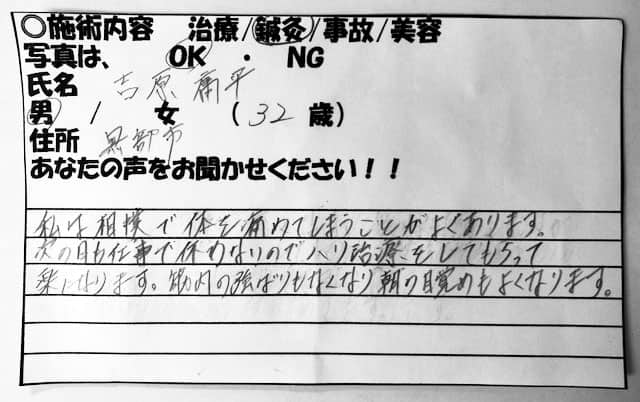 ○施術内容 治療/鍼灸/事故/美容
写真は、 OK ・ NG
氏名 吉原 蒲平
男 / 女 (32歳)
住所 黒部市
あなたの声をお聞かせください！！
私は相撲で体を痛めてしまうことがよくあります。
次の日も仕事で休めないのでハリ治療をしてもらって
楽になります。筋肉の強ばりもなくなり朝の目覚めもよくなります。